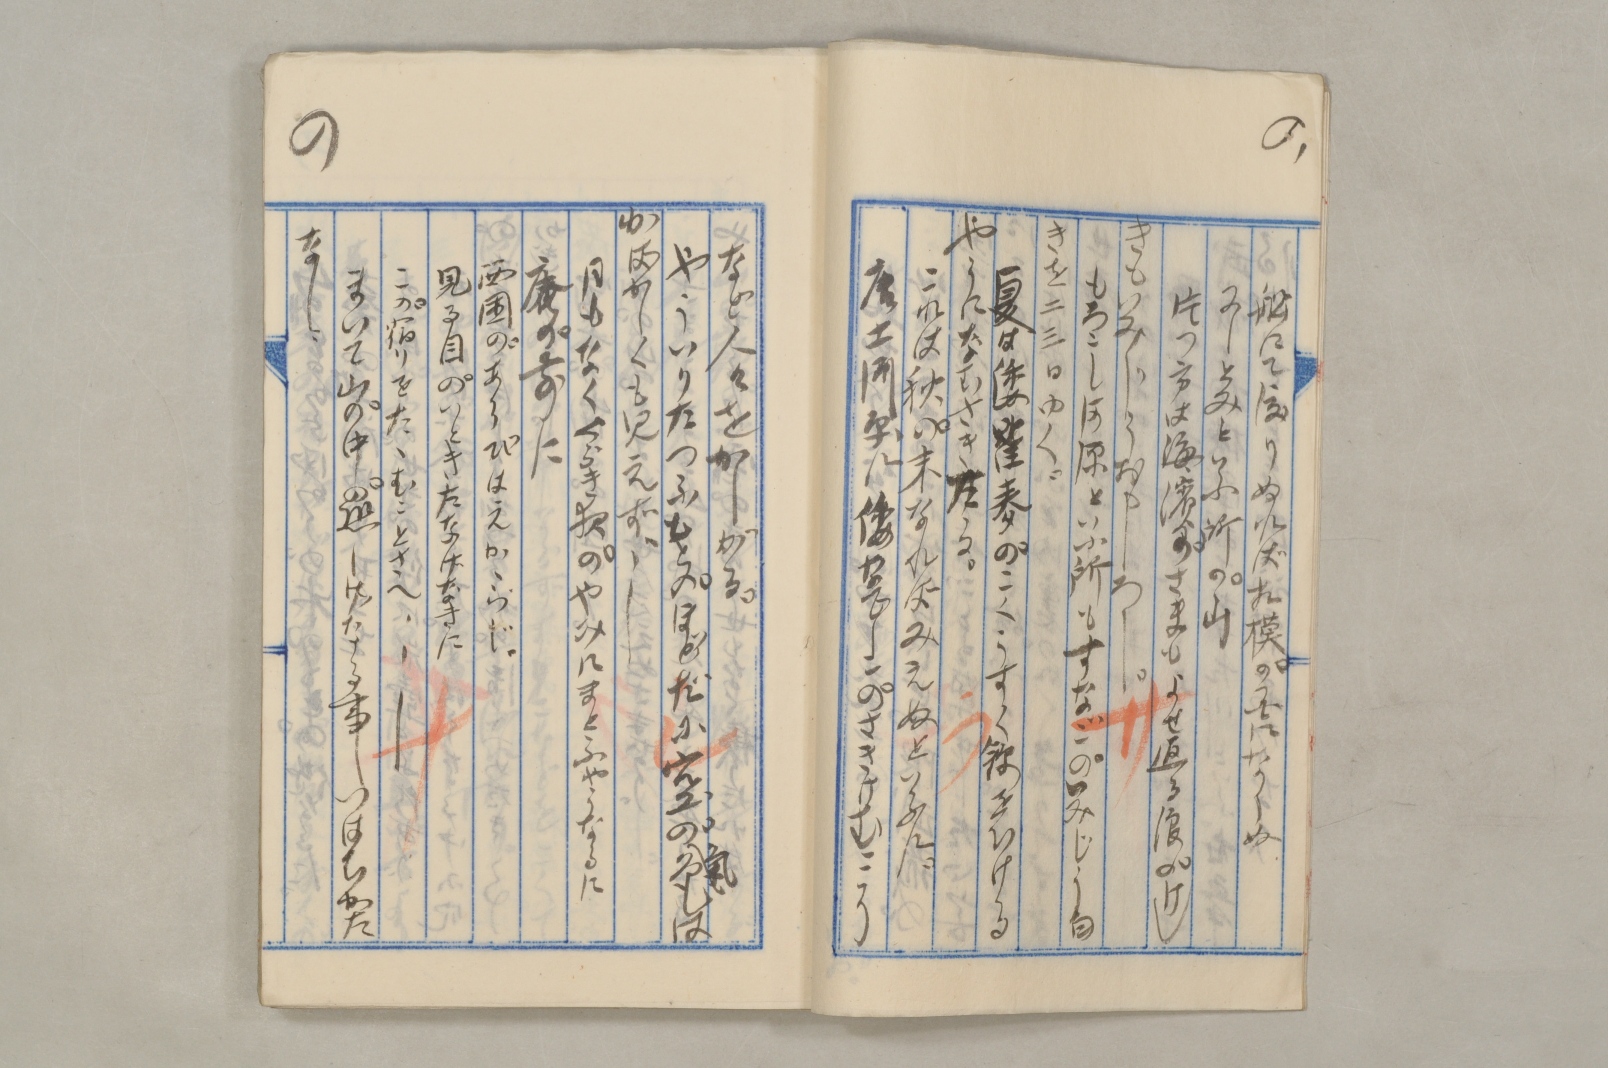 の、
船にて渡りぬれば相模の国になりぬ
にしとみといふ所の山
片つ方は海濱のさまもよせ返る浪のけし
きもいみじうおもしろし。
もろこし河原といふ所もすなごのいみじう白
きを二三日ゆく。
夏は倭瞿麦のこくうすく錦をひける
やうになむさきたる。
これは秋の末なればみえぬといふに
唐土河原に倭なでしこのさきけむこそ
の
など人々をかしがる。
やういりたつふもとのほどだに空の気しは
かばかしくも見えず
月もなくくらき夜のやみにまどふやうなるに
庵の前に
西国のあそびはえかゝらじ。
見る目のいときたなげなきに
この宿りをたゝむことさへ
まいて山の中の恐しげなる事いはむかた
なし、